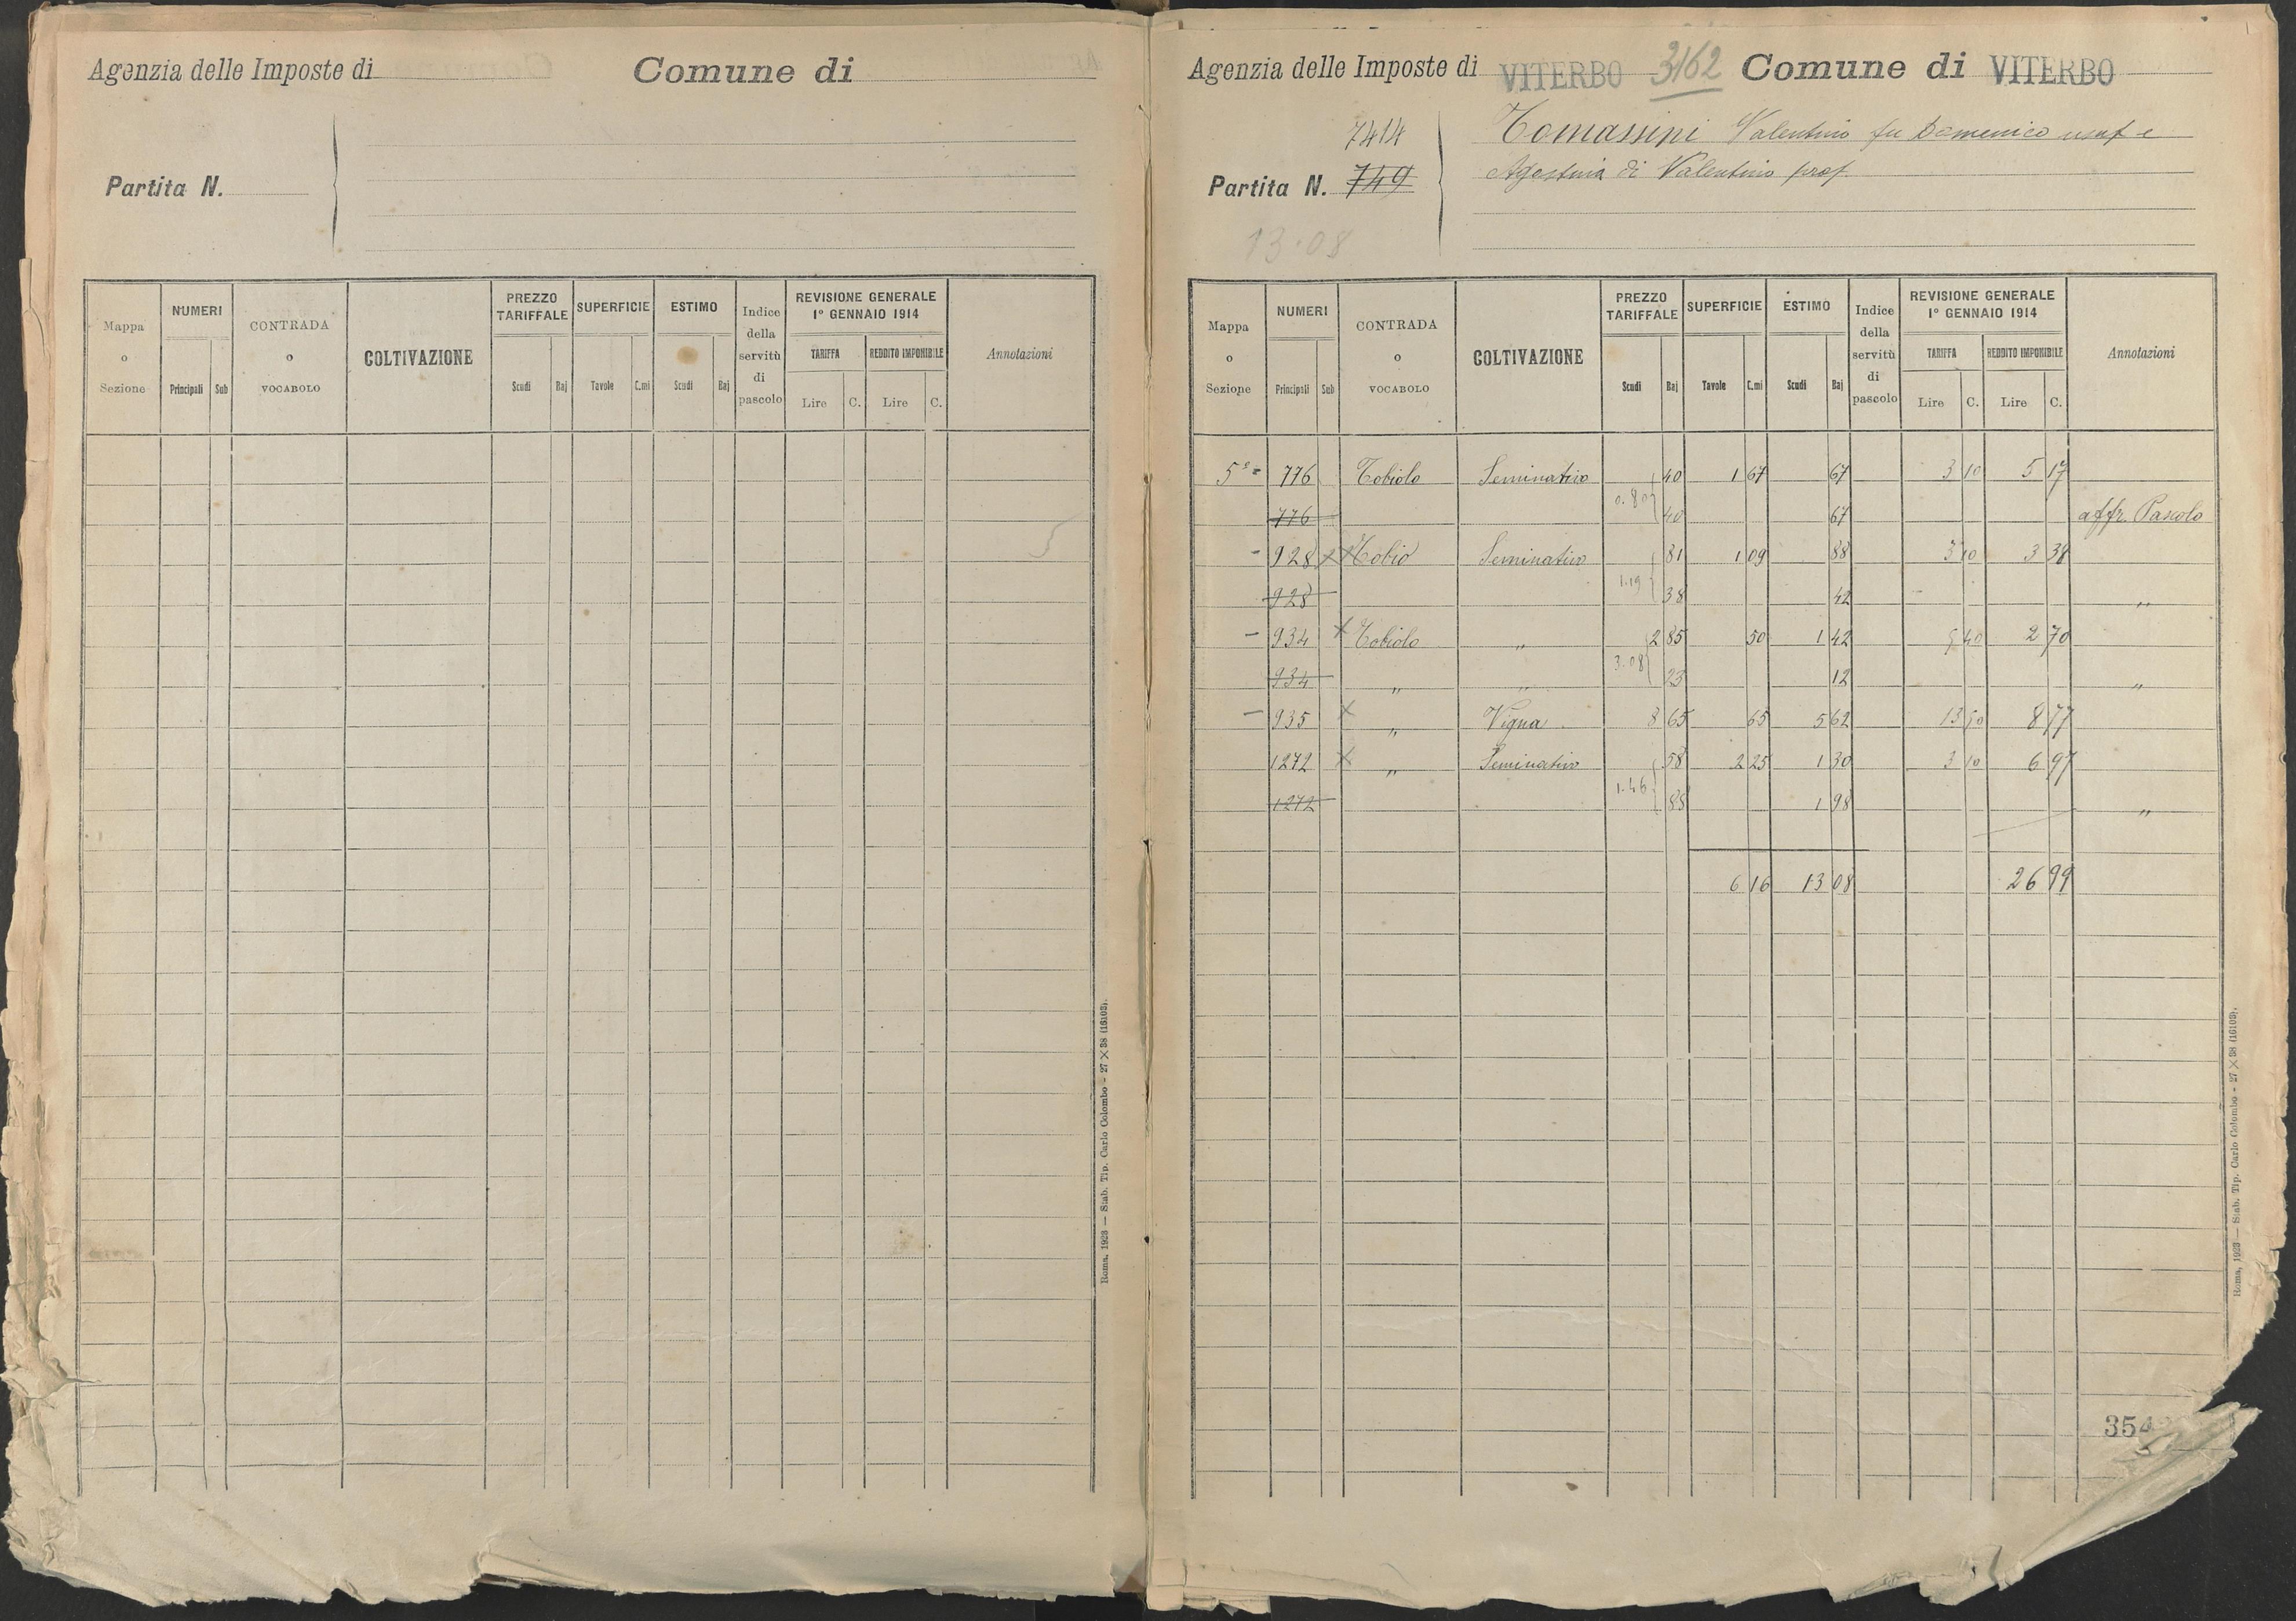 Agenzia delle Imposte di Comune di
Partita N.
Mappa o Sezione NUMERI CONTRADA o VOCABOLO COLTIVAZIONE PREZZO TARIFFALE SUPERFICIE ESTIMO Indice della servitù di pascolo REVISIONE GENERALE 1° GENNAIO 1914 Annotazioni
TARIFFA REDDITO IMPONIBILE
Principali Sub Scudi Baj Tavole C.mi Scudi Baj Lire C. Lire C.
Roma, 1923 — Stab. Tip. Carlo Colombo - 27 × 38 (16103).
Agenzia delle Imposte di VITERBO 3162 Comune di VITERBO
7414
Partita N. 749
13.08
Tomassini Valentino fu Domenico usuf e
Agostina di Valentino prop
Mappa o Sezione NUMERI CONTRADA o VOCABOLO COLTIVAZIONE PREZZO TARIFFALE SUPERFICIE ESTIMO Indice della servitù di pascolo REVISIONE GENERALE 1° GENNAIO 1914 Annotazioni
TARIFFA REDDITO IMPONIBILE
Principali Sub Scudi Baj Tavole C.mi Scudi Baj Lire C. Lire C.
5ª 776 Tobiolo Seminativo 40 1 67 67 3 10 5 17
776 0.80 40 67 affr. Pascolo
928 Tobio Seminativo 81 1 09 88 3 10 3 38
928 1.19 38 42 "
934 Tobiolo " 2 85 50 1 42 5 40 2 70
934 " " 3.08 23 12 "
935 " Vigna 8 65 65 5 62 13 50 8 77
1272 " Seminativo 58 2 25 1 30 3 10 6 97
1272 1.46 88 1 98 "
6 16 13 08 26 99
354
Roma, 1923 — Stab. Tip. Carlo Colombo - 27 × 38 (16103).